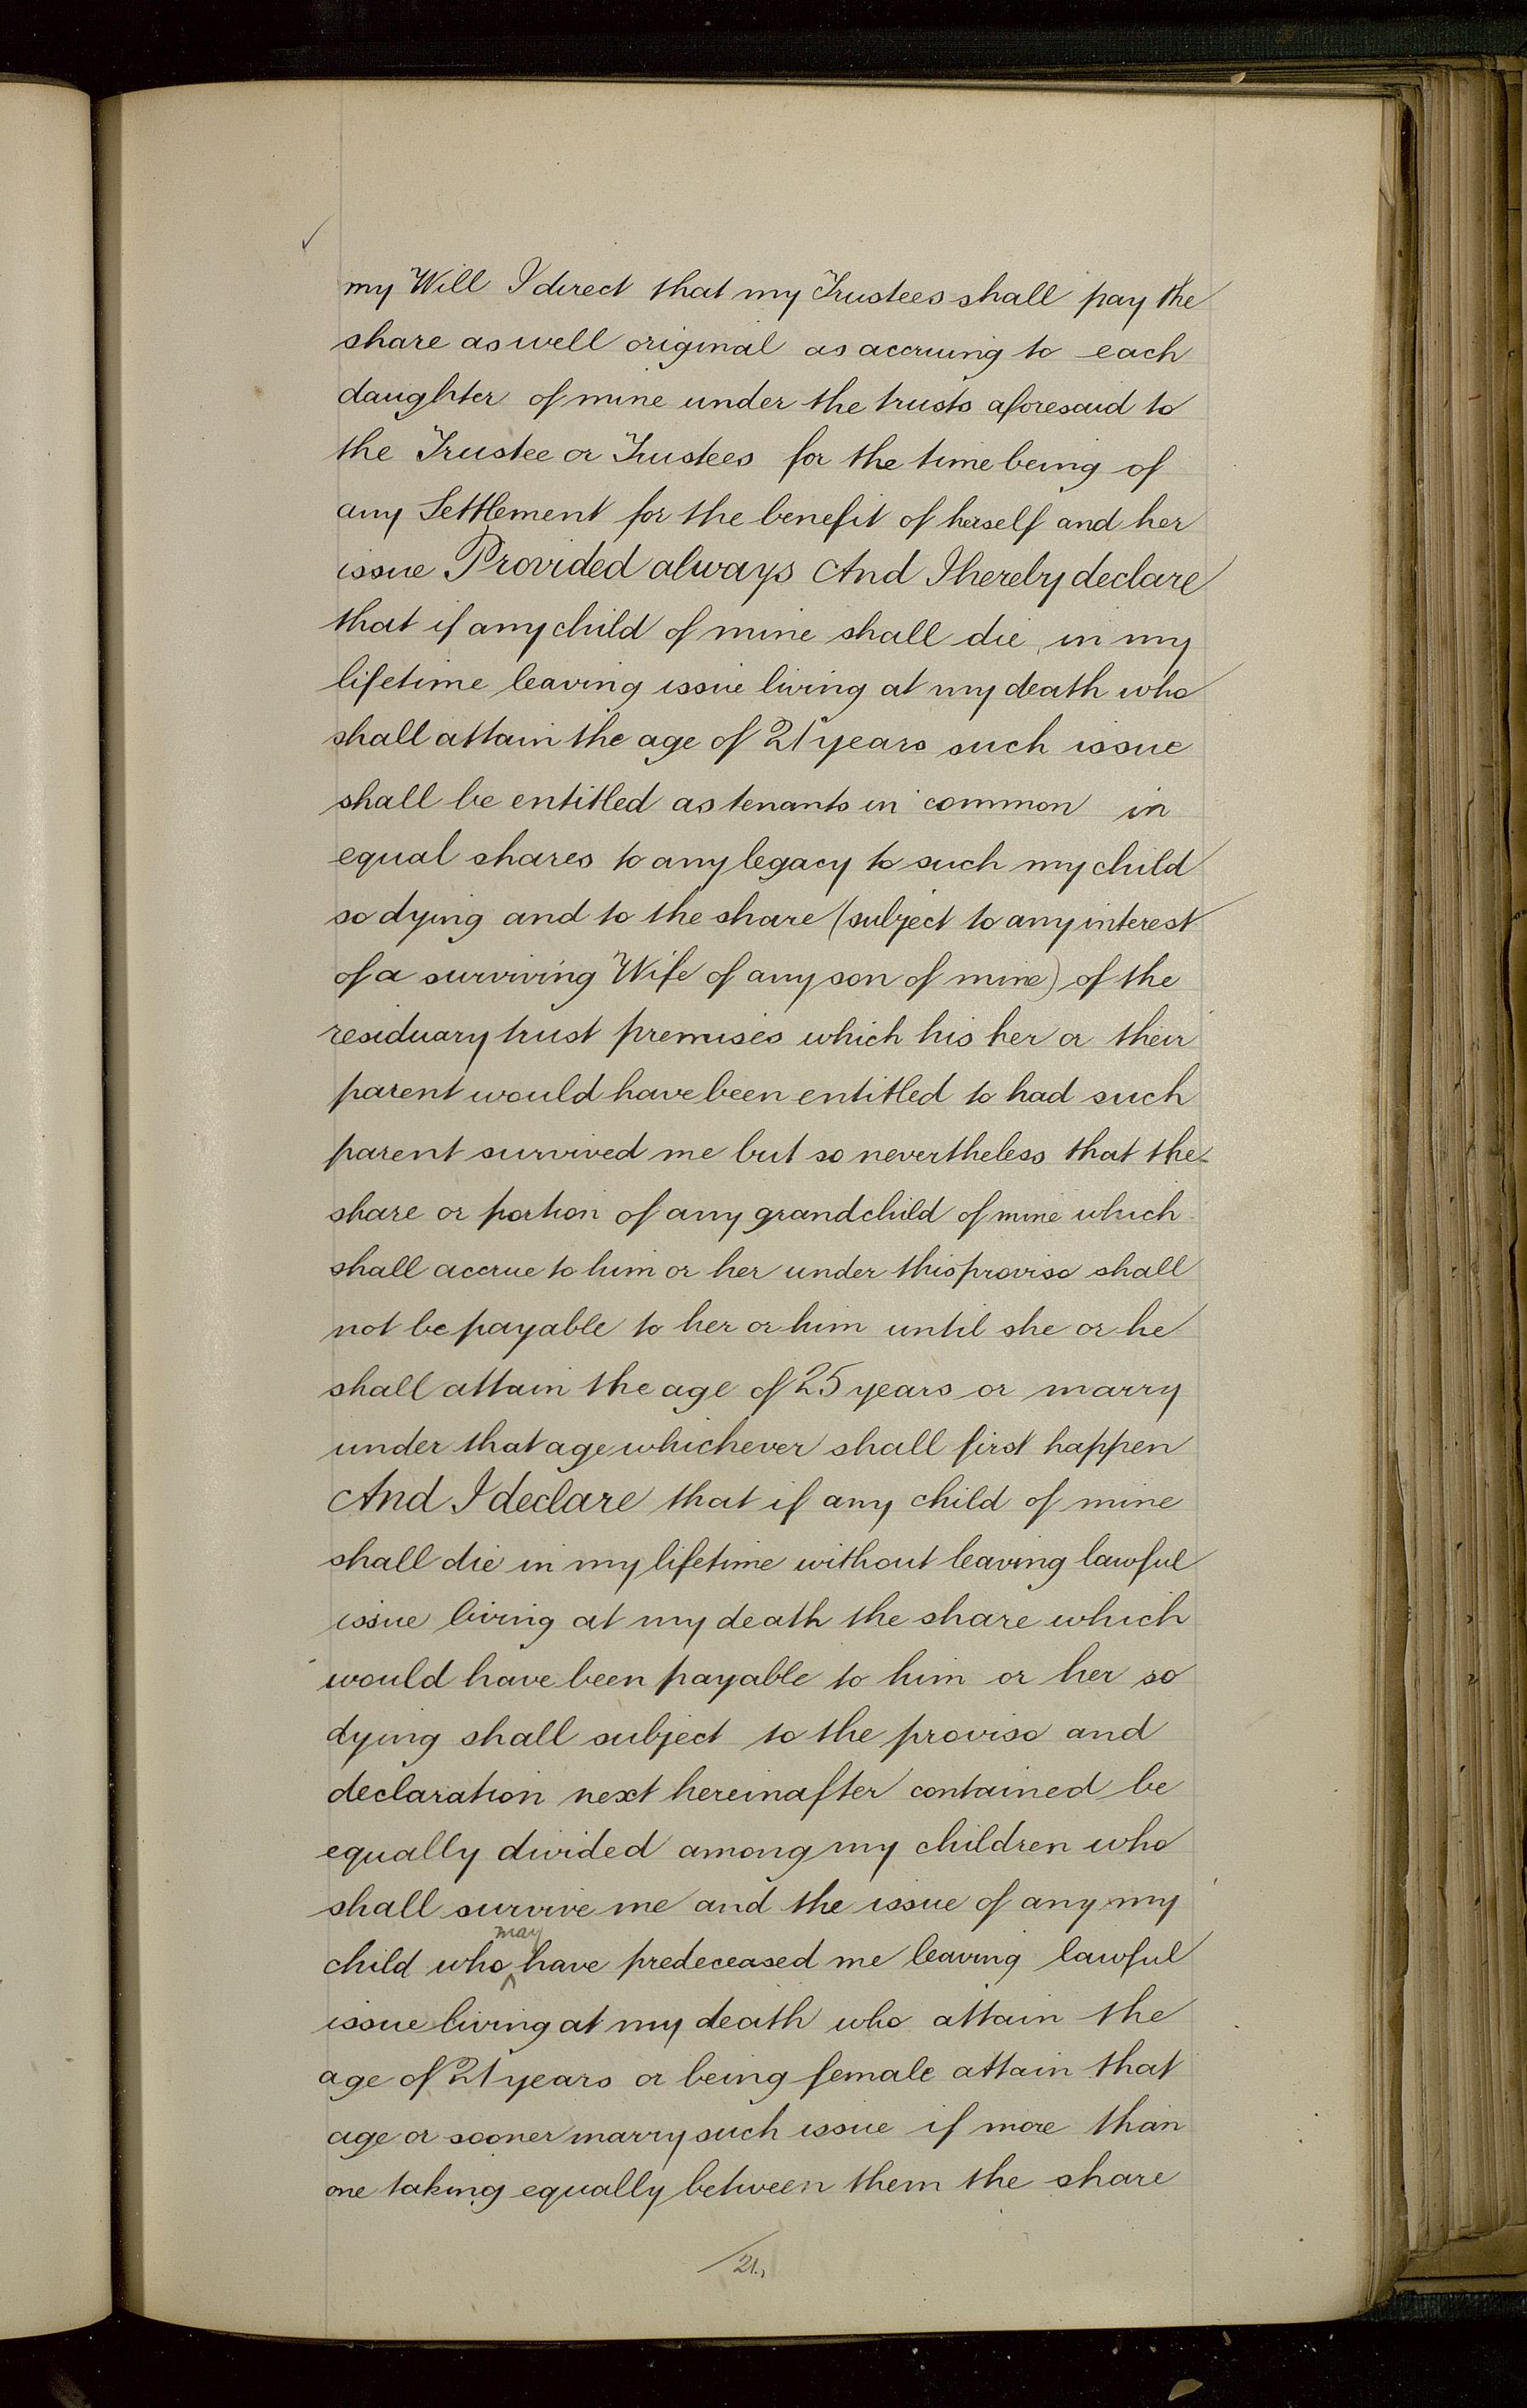 my Will I direct that my Trustees shall pay the
share as well original as accruing to each
daughter of mine under the trusts aforesaid to
the Trustee or Trustees for the time being of
any Settlement for the benefit of herself and her
issue Provided always And I hereby declare
that if any child of mine shall die in my
lifetime leaving issue living at my death who
shall attain the age of 21 years such issue
shall be entitled as tenants in common in
equal shares to any legacy to such my child
so dying and to the share (subject to any interest
of a surviving Wife of any son of mine) of the
residuary trust premises which his her or their
parent would have been entitled to had such
parent survived me but so nevertheless that the
share or portion of any grandchild of mine which
shall accrue to him or her under this proviso shall
not be payable to her or him until she or he
shall attain the age of 25 years or marry
under that age whichever shall first happen
And I declare that if any child of mine
shall die in my lifetime without leaving lawful
issue living at my death the share which
would have been payable to him or her so
dying shall subject to the proviso and
declaration next hereinafter contained be
equally divided among my children who
shall survive me and the issue of any my
child who may have predeceased me leaving lawful
issue living at my death who attain the
age of 21 years or being female attain that
age or sooner marry such issue if more than
one taking equally between them the share
21.